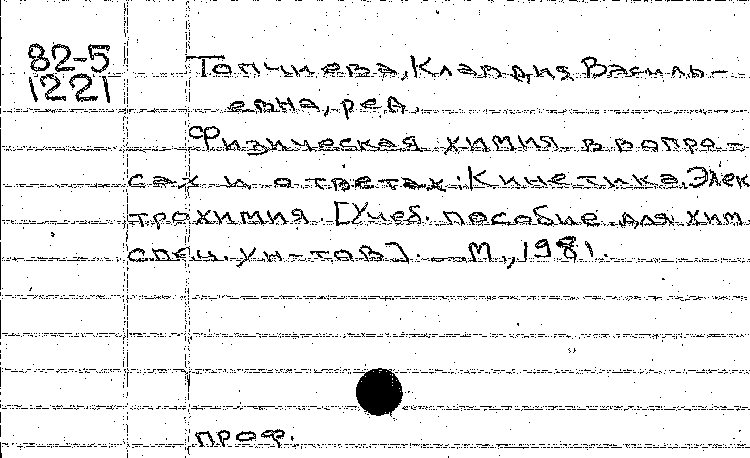 82-5
1221
Топчиева, Клавдия Василь-
евна, ред.
Физическая химия в вопро-
сах и ответах: Кинетика. Элек
трохимия. [Учеб. пособие для хим
спец. ун-тов]. — М., 1981.
проф.